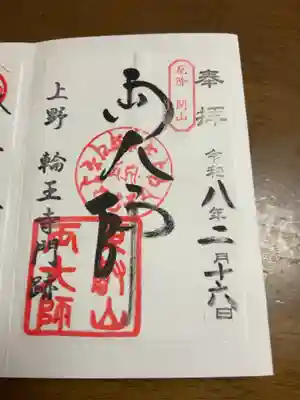 奉拝
令和八年二月十六日
厄除 開山
両大師
上野 輪王寺門跡
両大師